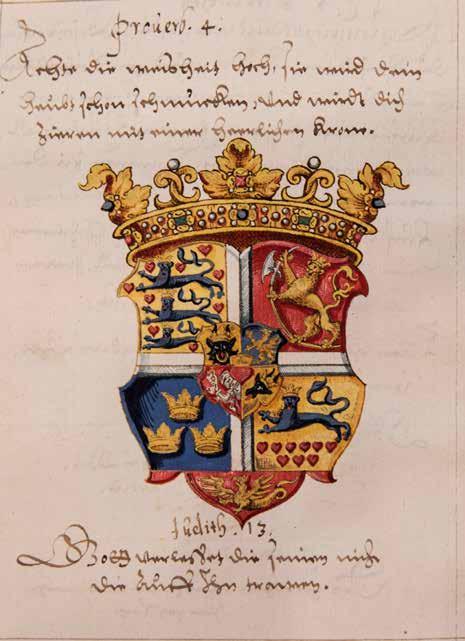 Proverb. 4.
Achte die weisheit hoch, sie wird dein
heubt schon schmucken, Und wirdt dich
zieren mit einer herrlichen Krone.
Judith. 13.
Gott verlesset die jenien nicht
die Auff Ihn trawen.